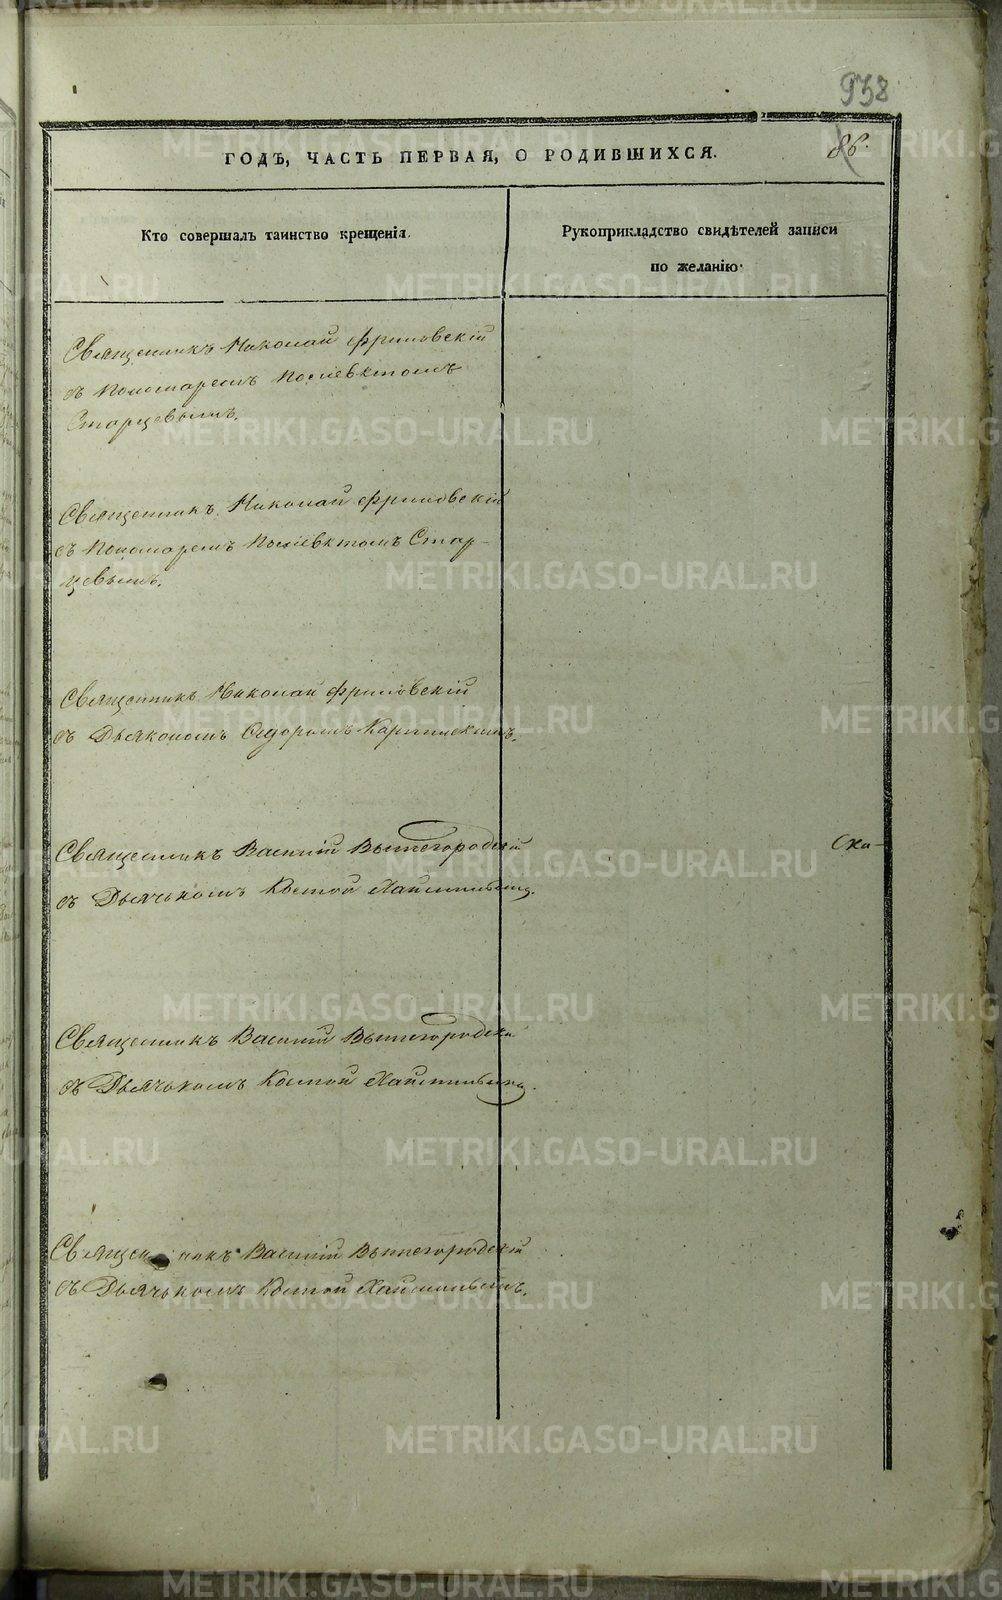 938
86.
ГОДЪ, ЧАСТЬ ПЕРВАЯ, О РОДИВШИХСЯ.
Кто совершалъ таинство крещенія.
Рукоприкладство свидѣтелей записи
по желанію.
Священникъ Николай Фриловскій
съ Пономаремъ Полиевктомъ
Старцевымъ.
Священникъ Николай Фриловскій
съ Пономаремъ Полиевктомъ Стар-
цевымъ.
Священникъ Николай Фриловскій
съ Дьякономъ Сидоромъ
Священникъ Василій Вышегородскій
съ Дьячькомъ Костой
Ска-
Священникъ Василій Вышегородскій
съ Дьячькомъ Костой
Священникъ Василій Вышегородскій
съ Дьячькомъ Костой
METRIKI.GASO-URAL.RU